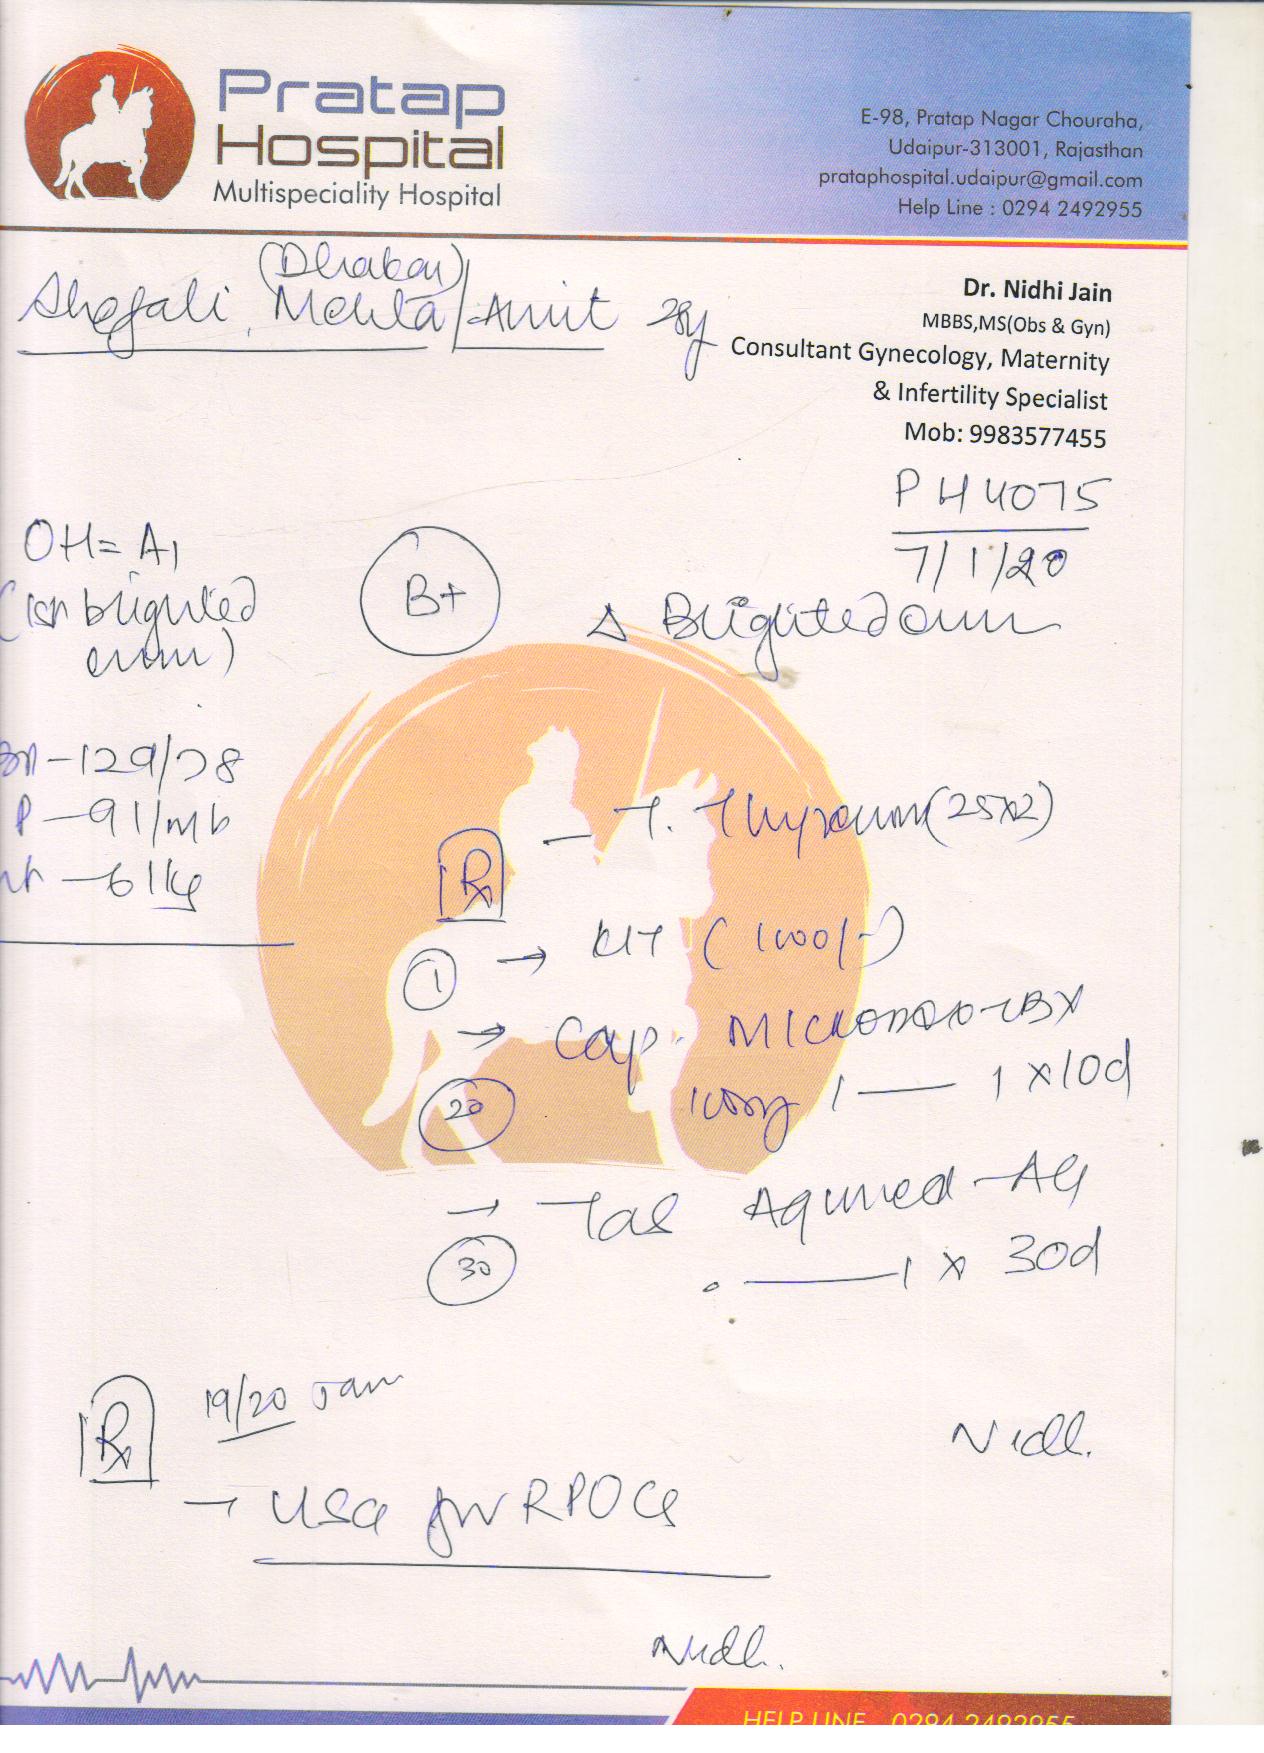 Pratap
Hospital
Multispeciality Hospital
E-98, Pratap Nagar Chouraha,
Udaipur-313001, Rajasthan
prataphospital.udaipur@gmail.com
Help Line : 0294 2492955
(Dhakar)
Shefali Mehta/Amit 28y
Dr. Nidhi Jain
MBBS,MS(Obs & Gyn)
Consultant Gynecology, Maternity
& Infertility Specialist
Mob: 9983577455
PH4075
7/1/20
OH= A1
(1st blighted
ovum)
B+
Δ Blighted ovum
BP - 129/78
P - 91/m
wt - 61kg
Rx
- T. (25x2)
1 → KIT (1000/-)
→ Cap.
20
100mg 1 — 1 x 10d
→ Tab -AG
30
— 1 x 30d
Rx 19/20 Jan
→ USG for RPOCs
Nidhi
Nidhi
HELP LINE 0294 2492955